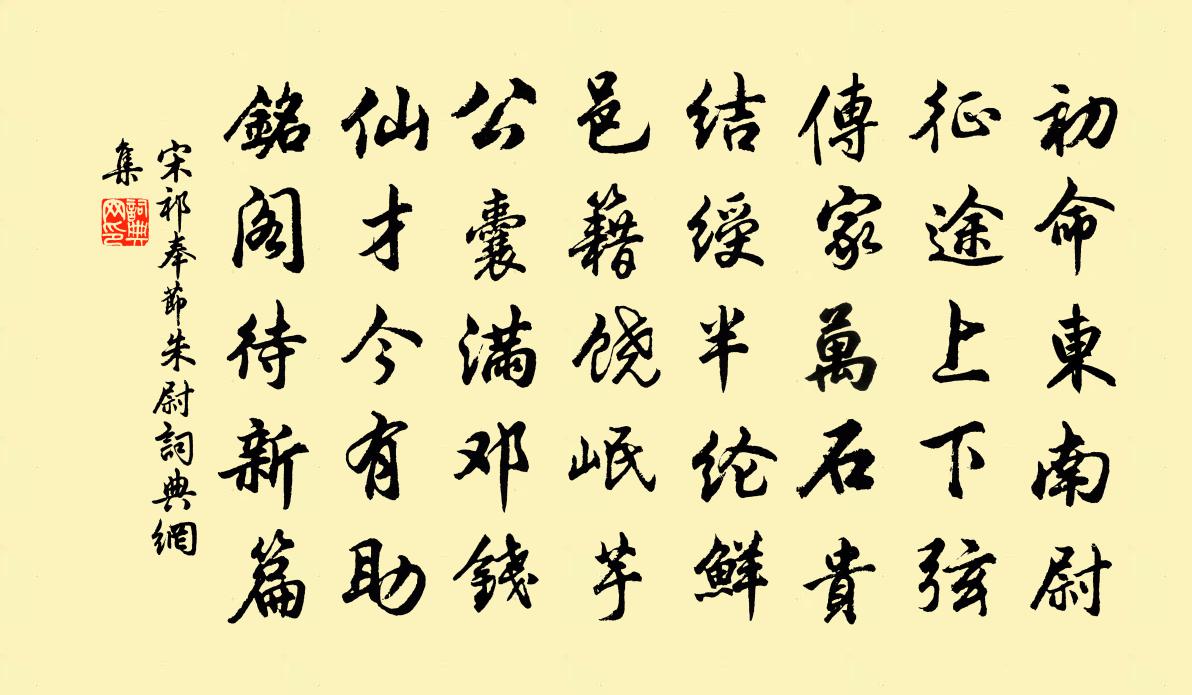 初命東南尉
征途上下弦
傳家萬石貴
结綬半纶鮮
邑籍饶岷芋
公囊满邓錢
仙才今有助
銘阁待新篇
宋祁奉節朱尉詞典網
集
詞典网印